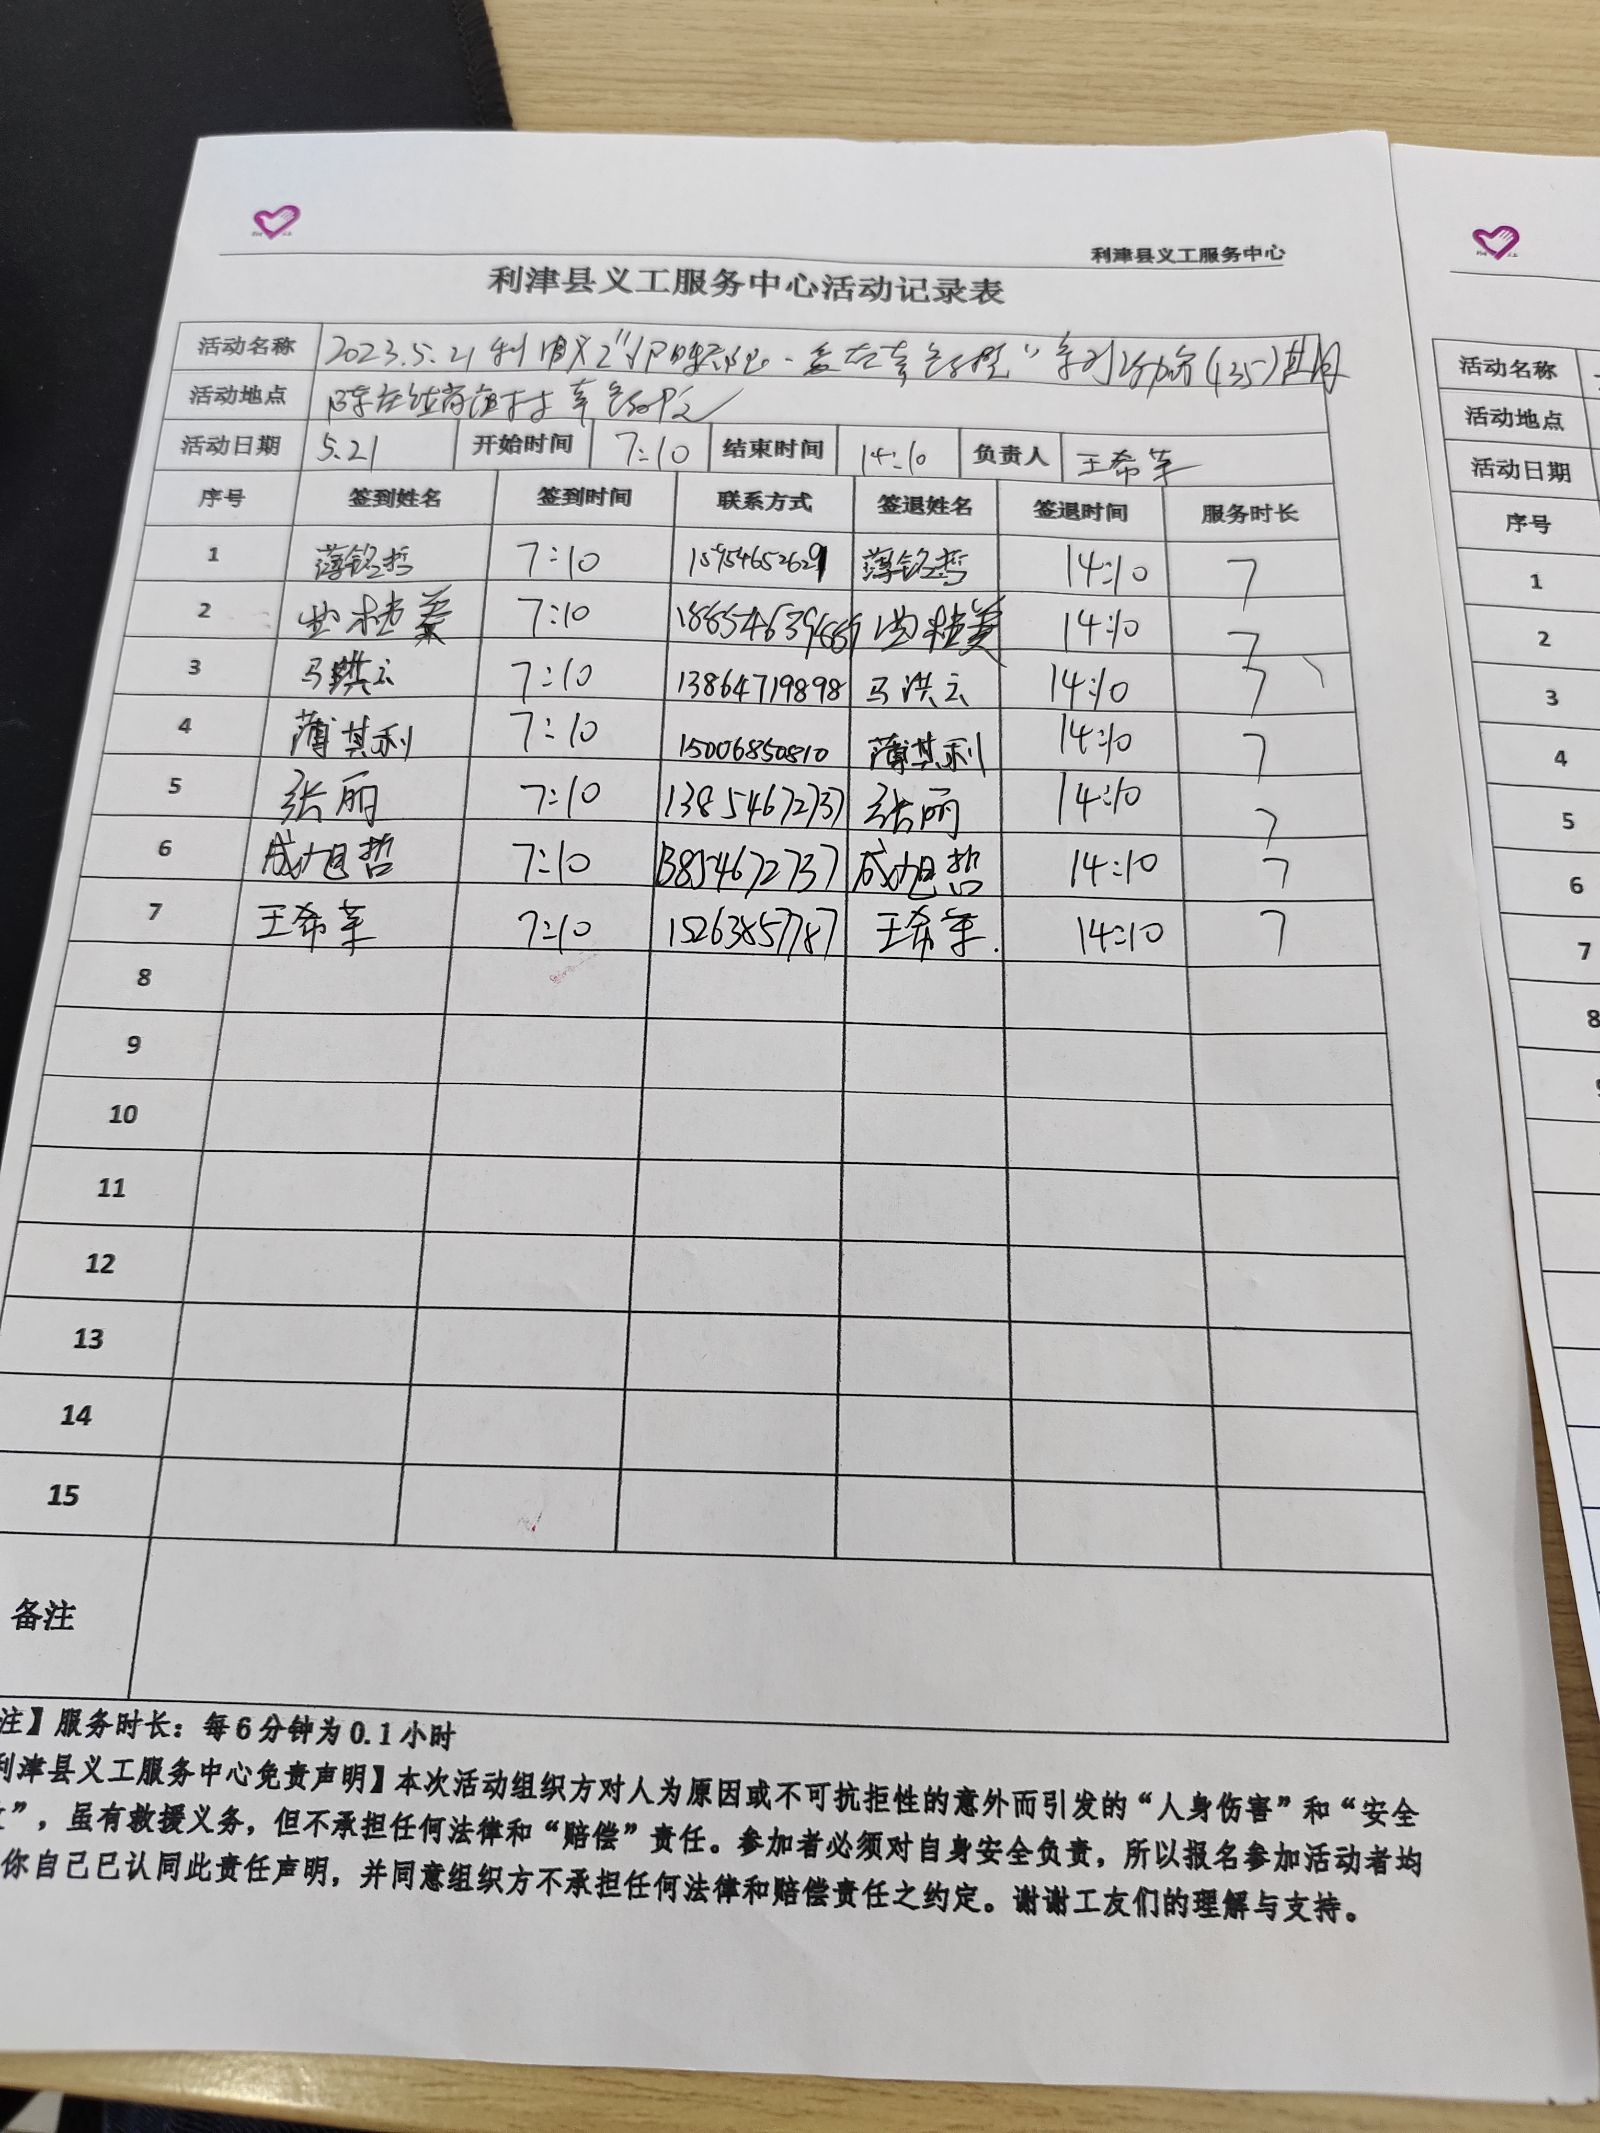 利津县义工服务中心
利津县义工服务中心活动记录表
活动名称 2023.5.21 (135)
活动地点
活动日期 5.21 开始时间 7:10 结束时间 14:10 负责人 王希革
序号 签到姓名 签到时间 联系方式 签退姓名 签退时间 服务时长
1 薄铭哲 7:10 15954652629 薄铭哲 14:10 7
2 7:10 14:10 7
3 马洪云 7:10 13864719898 马洪云 14:10 7
4 薄其利 7:10 15006850810 薄其利 14:10 7
5 张丽 7:10 13854672737 张丽 14:10 7
6 成旭哲 7:10 13854672737 成旭哲 14:10 7
7 王希革 7:10 15263857787 王希革 14:10 7
8
9
10
11
12
13
14
15
备注
注】服务时长：每6分钟为0.1小时
利津县义工服务中心免责声明】本次活动组织方对人为原因或不可抗拒性的意外而引发的“人身伤害”和“安全
”，虽有救援义务，但不承担任何法律和“赔偿”责任。参加者必须对自身安全负责，所以报名参加活动者均
你自己已认同此责任声明，并同意组织方不承担任何法律和赔偿责任之约定。谢谢工友们的理解与支持。
活动名称
活动地点
活动日期
序号
1
2
3
4
5
6
7
8